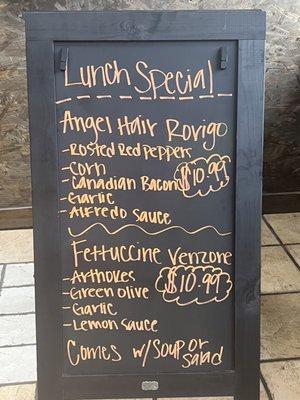 Lunch Special
Angel Hair Rovigo
-Rosted Red Peppers
-Corn
-Canadian Bacon
$10.99
-Garlic
-Alfredo Sauce
Fettuccine Venzone
-Arthokes
$10.99
-Green Olive
-Garlic
-Lemon Sauce
Comes w/ Soup or
Salad